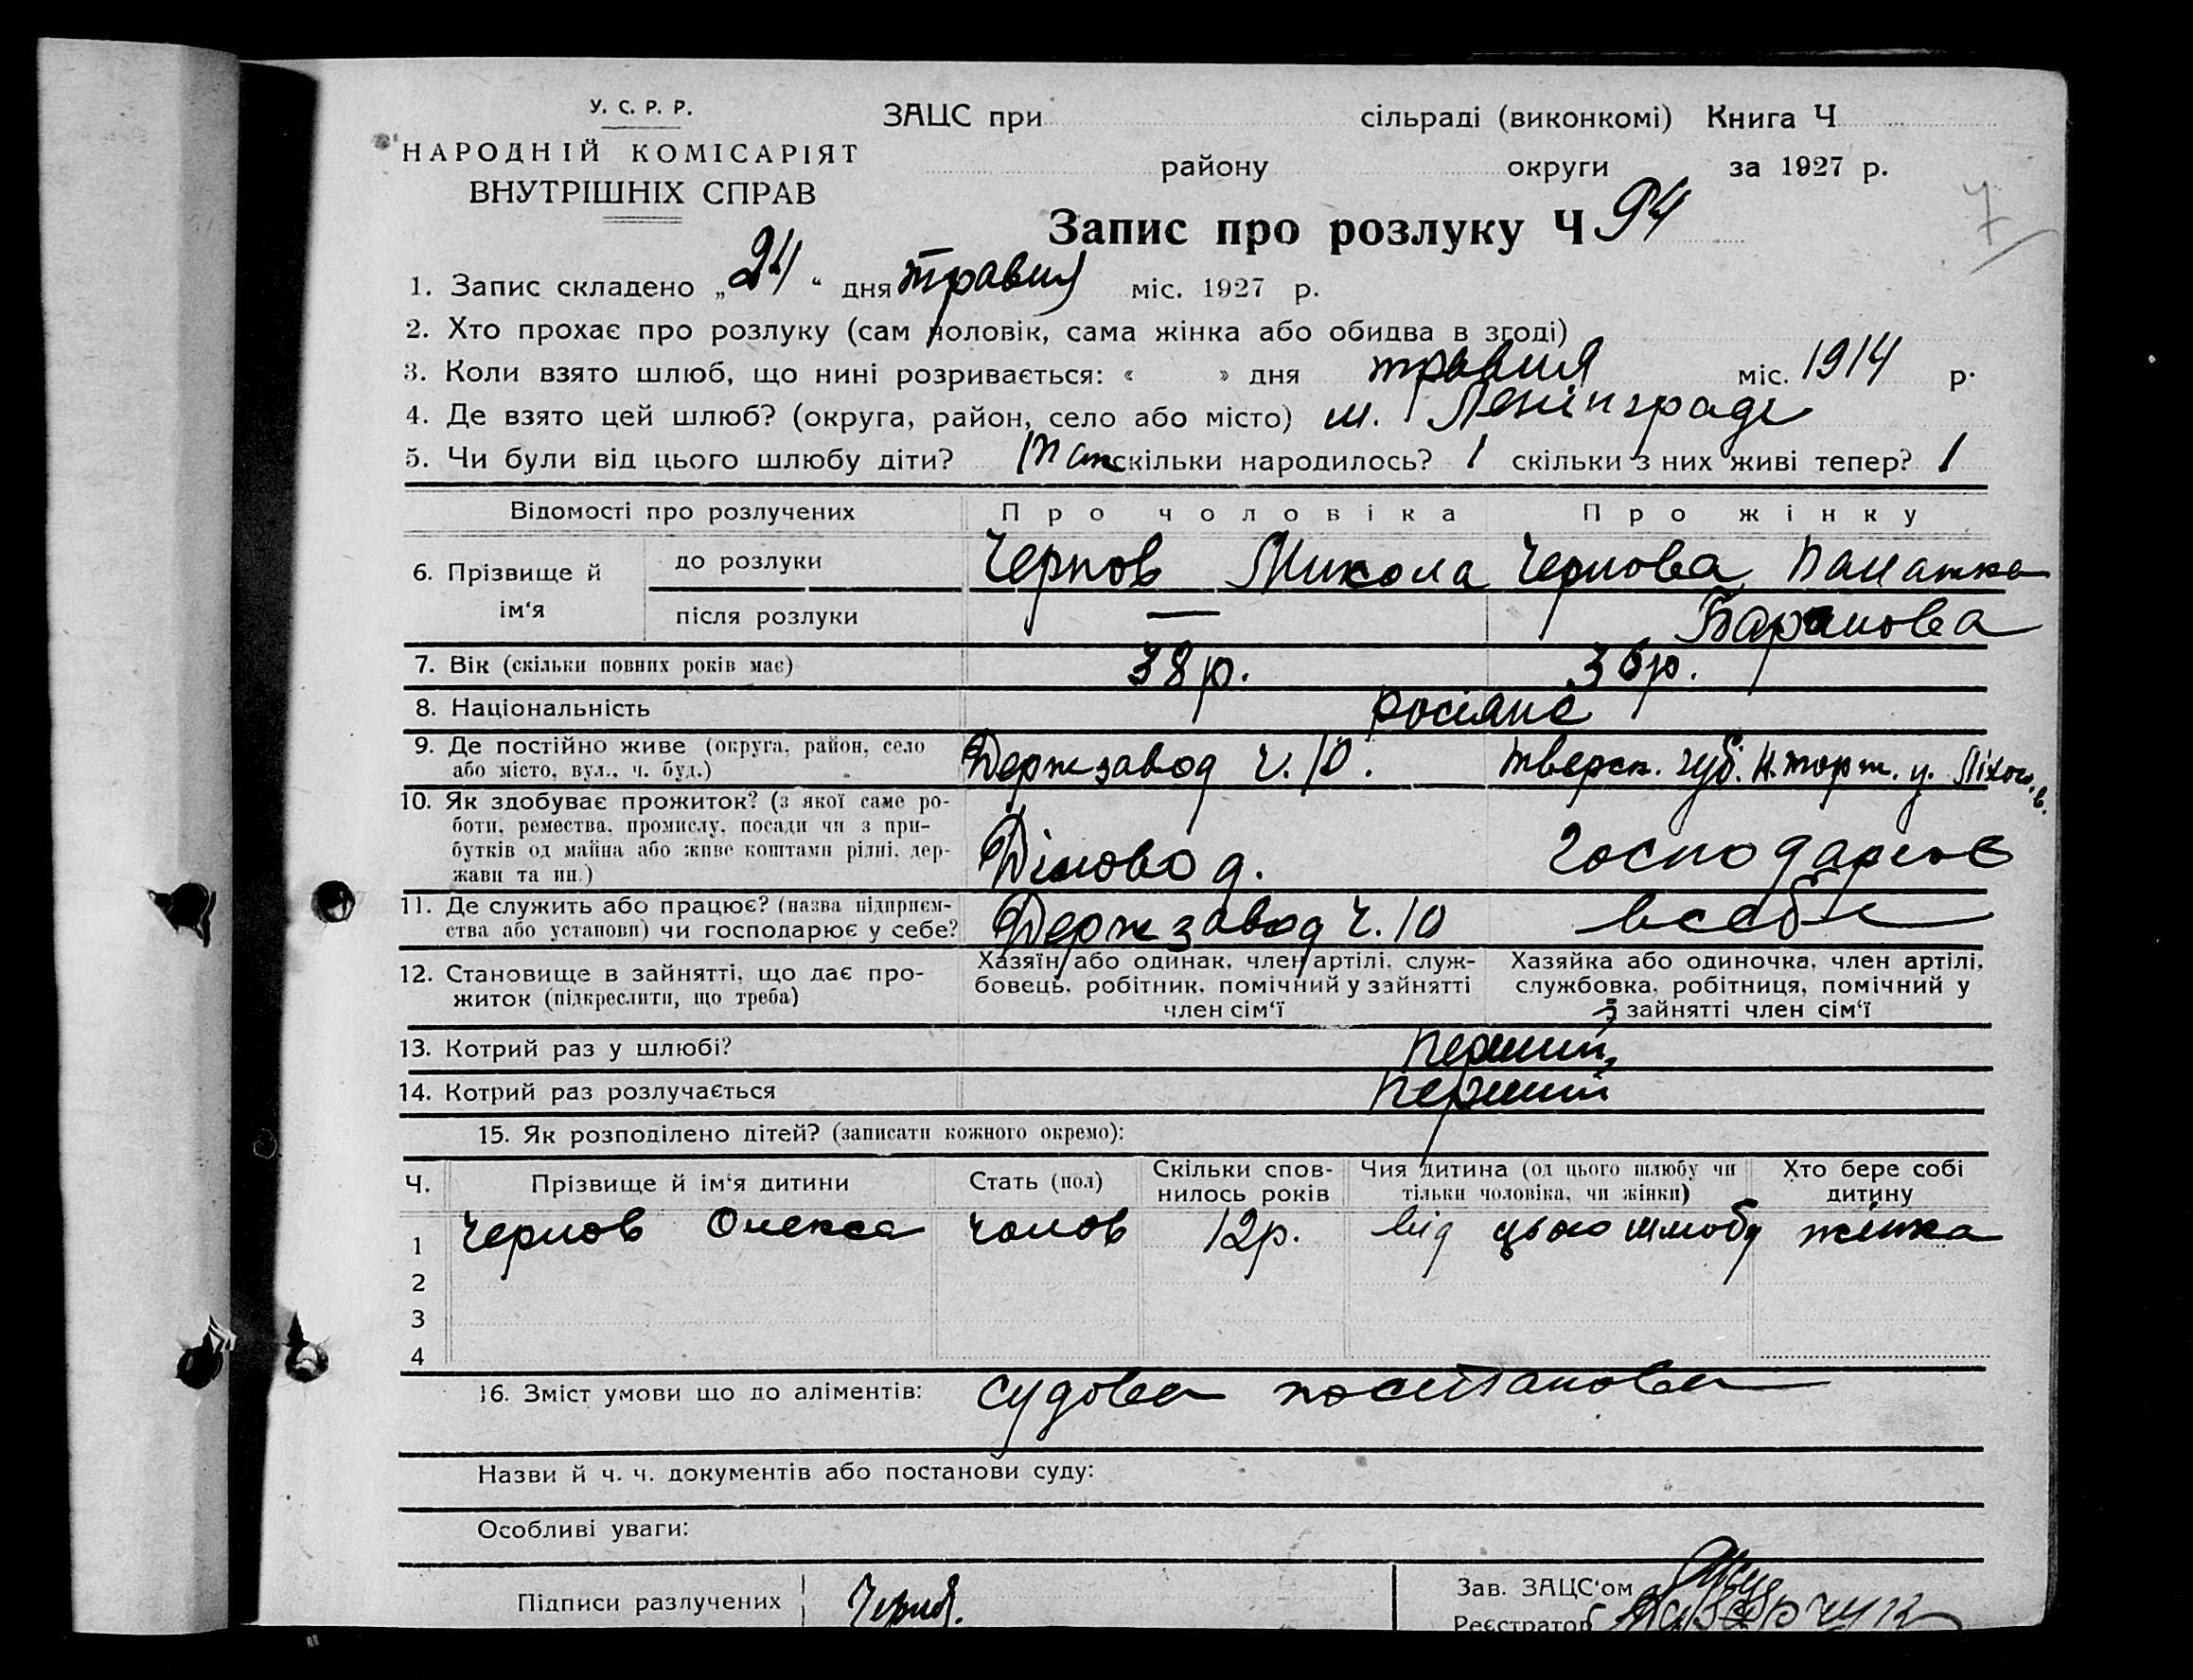 У. С. Р. Р.
НАРОДНІЙ КОМІСАРІЯТ
ВНУТРІШНІХ СПРАВ
ЗАЦС при сільраді (виконкомі) Книга Ч
району округи за 1927 р.
7
Запис про розлуку Ч 94
1. Запис складено „24“ дня травня міс. 1927 р.
2. Хто прохає про розлуку (сам чоловік, сама жінка або обидва в згоді)
3. Коли взято шлюб, що нині розривається: « » дня травня міс. 1914 р.
4. Де взято цей шлюб? (округа, район, село або місто) м. Ленінграді
5. Чи були від цього шлюбу діти? так скільки народилось? 1 скільки з них живі тепер? 1
Відомості про розлучених Про чоловіка Про жінку
6. Прізвище й ім‘я
до розлуки Чернов Микола Чернова
після розлуки — Баранова
7. Вік (скільки повних років має) 38 р. 36 р.
8. Національність росіяне
9. Де постійно живе (округа, район, село або місто, вул., ч. буд.) Держзавод ч. 10. Тверск. губ. Н. торж. у.
10. Як здобуває прожиток? (з якої саме роботи, ремества, промислу, посади чи з прибутків од майна або живе коштами рідні, держави та ин.) Діловод. Господарює
11. Де служить або працює? (назва підприємства або установи) чи господарює у себе? Держзавод ч. 10 в себе
12. Становище в зайнятті, що дає прожиток (підкреслити, що треба)
Хазяїн або одинак, член артілі, службовець, робітник, помічний у зайнятті член сім‘ї
Хазяйка або одиночка, член артілі, службовка, робітниця, помічний у зайнятті член сім‘ї
13. Котрий раз у шлюбі? перший
14. Котрий раз розлучається перший
15. Як розподілено дітей? (записати кожного окремо):
Ч. Прізвище й ім‘я дитини Стать (пол) Скільки сповнилось років Чия дитина (од цього шлюбу чи тільки чоловіка, чи жінки) Хто бере собі дитину
1 Чернов Олекса чолов 12 р. від цього шлюбу жінка
2
3
4
16. Зміст умови що до аліментів: судова постанова
Назви й ч. ч. документів або постанови суду:
Особливі уваги:
Підписи разлучених Чернов.
Зав. ЗАЦС‘ом
Реєстратор